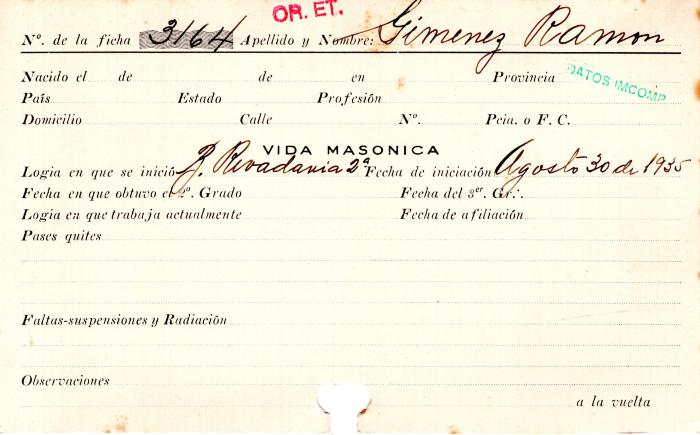 OR. ET.
Nº. de la ficha 3164 Apellido y Nombre: Gimenez Ramon
Nacido el de de en Provincia
DATOS IMCOMP
País Estado Profesión
Domicilio Calle Nº. Pcia. o F. C.
VIDA MASONICA
Logia en que se inició B. Rivadavia 2ª Fecha de iniciación Agosto 30 de 1935
Fecha en que obtuvo el 2º. Grado Fecha del 3er. Gr∴
Logia en que trabaja actualmente Fecha de afiliación
Pases quites
Faltas-suspensiones y Radiación
Observaciones
a la vuelta